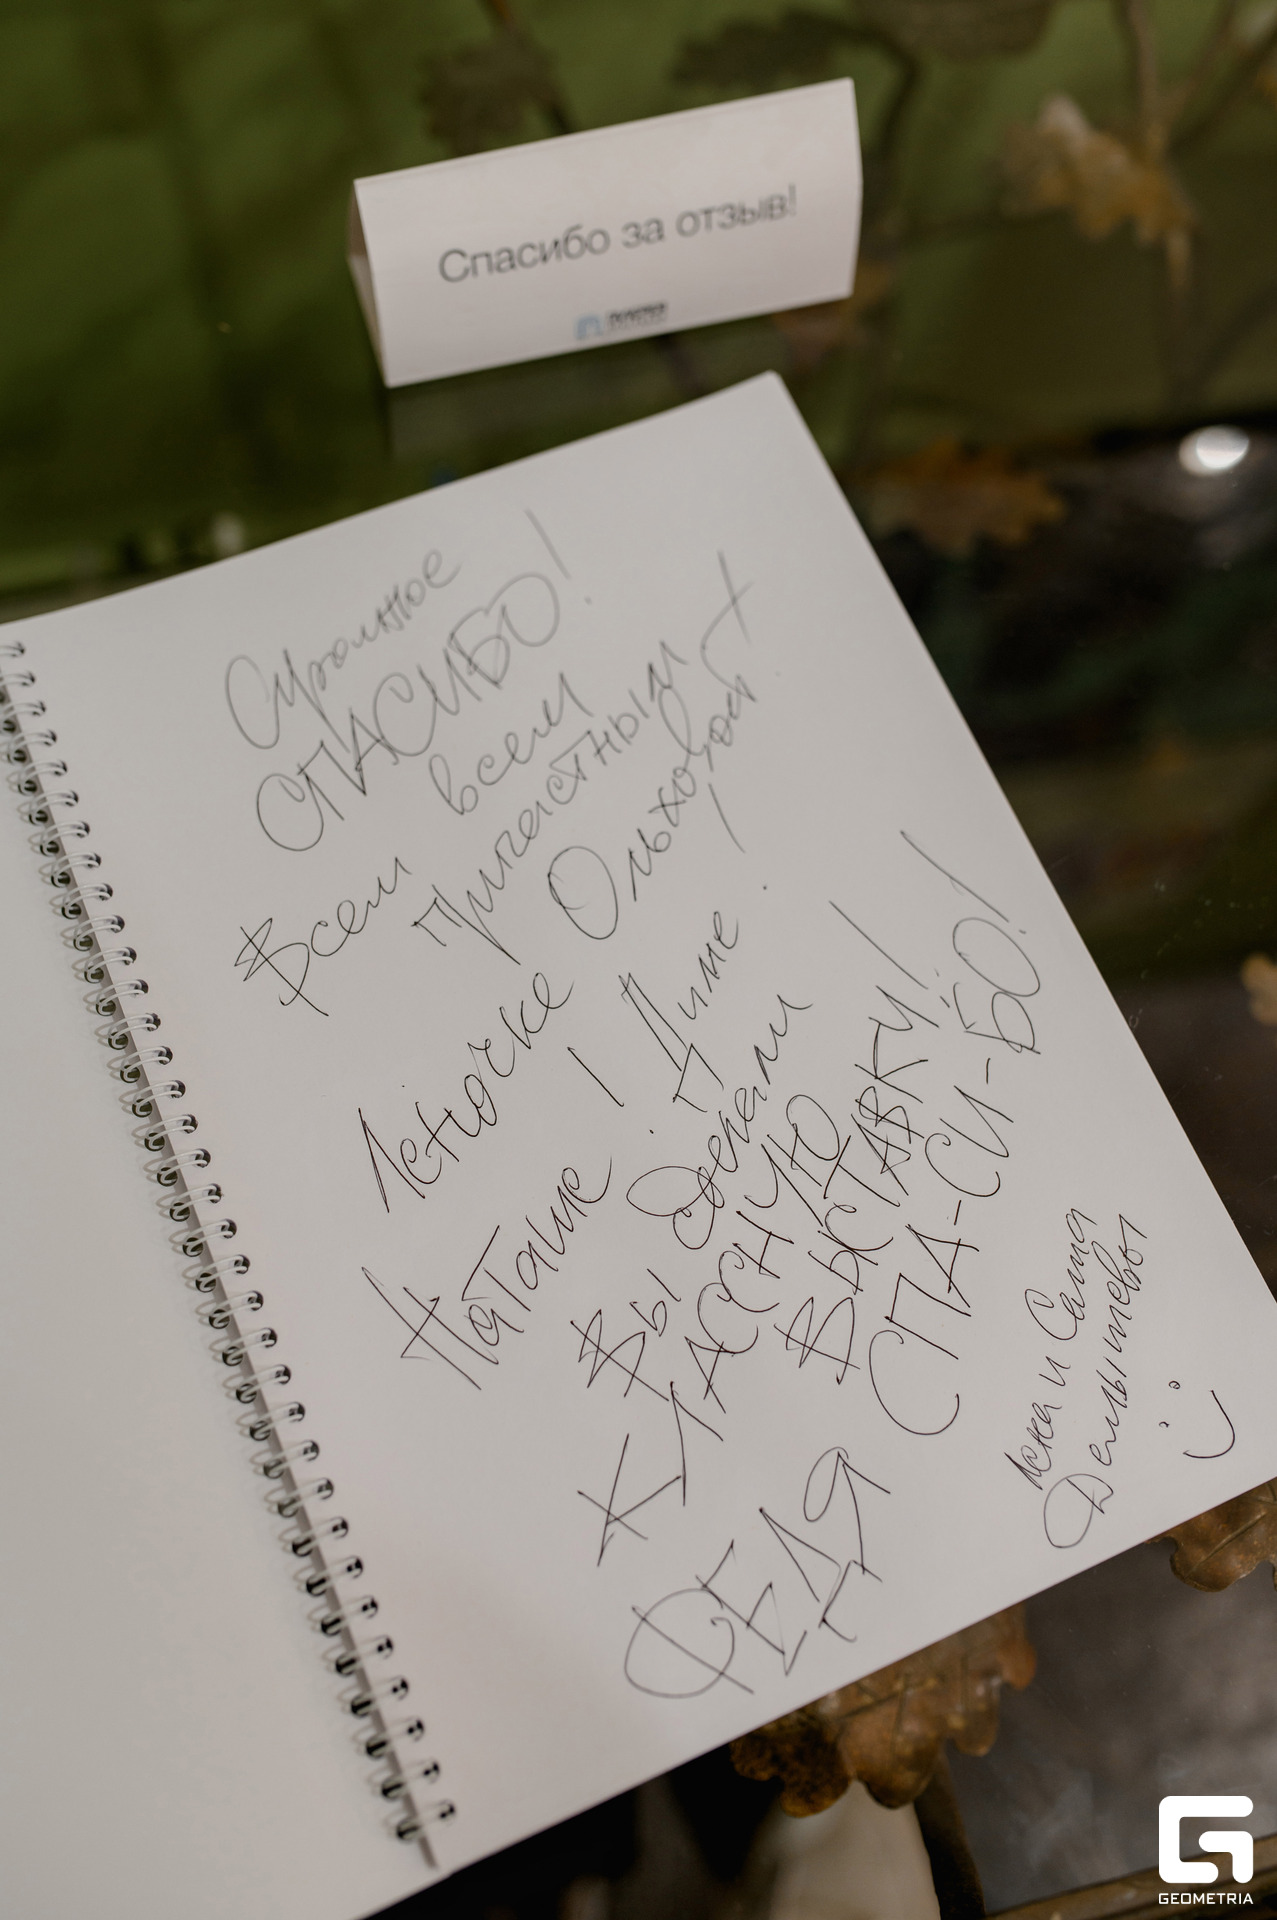 Спасибо за отзыв!
Огромное
СПАСИБО!
Всем всем
причастным
Леночке Ольховой!
Наташе! Диме!
Вы сделали
КЛАССНУЮ
ВЫСТАВКУ!
СПА-СИ-БО!
ФЕДЯ
Лена и Саша
GEOMETRIA